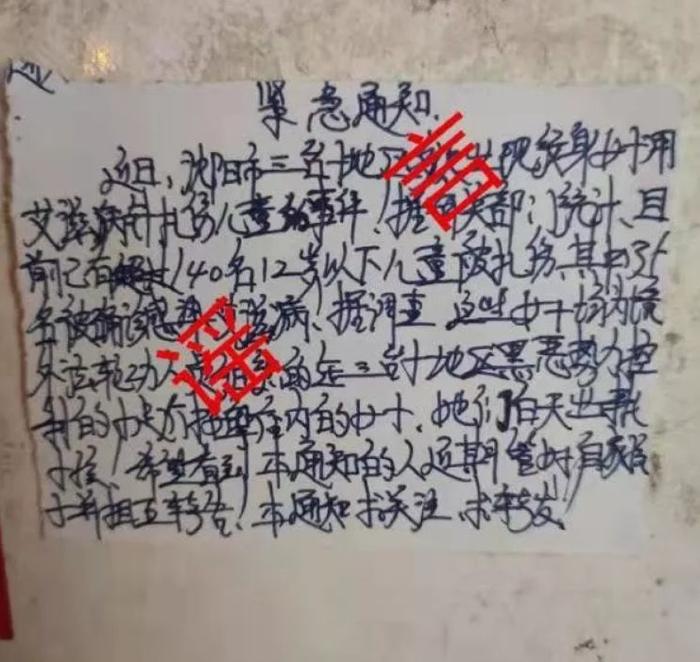 紧急通知.
近日,沈阳市三台子地区 出现纹身女子用
艾滋病针扎伤儿童的事件!据 部门统计、目
前已有超过140名12岁以下儿童被扎伤.其中35
名被确诊感染艾滋病!据调查 这些女子
外法轮功人员 三台子地区黑恶势力控
制的 内的女子.她们白天出
希望看到本通知的人近期管好自家孩
子并相互转告!本通知求关注.求转发!
谣言